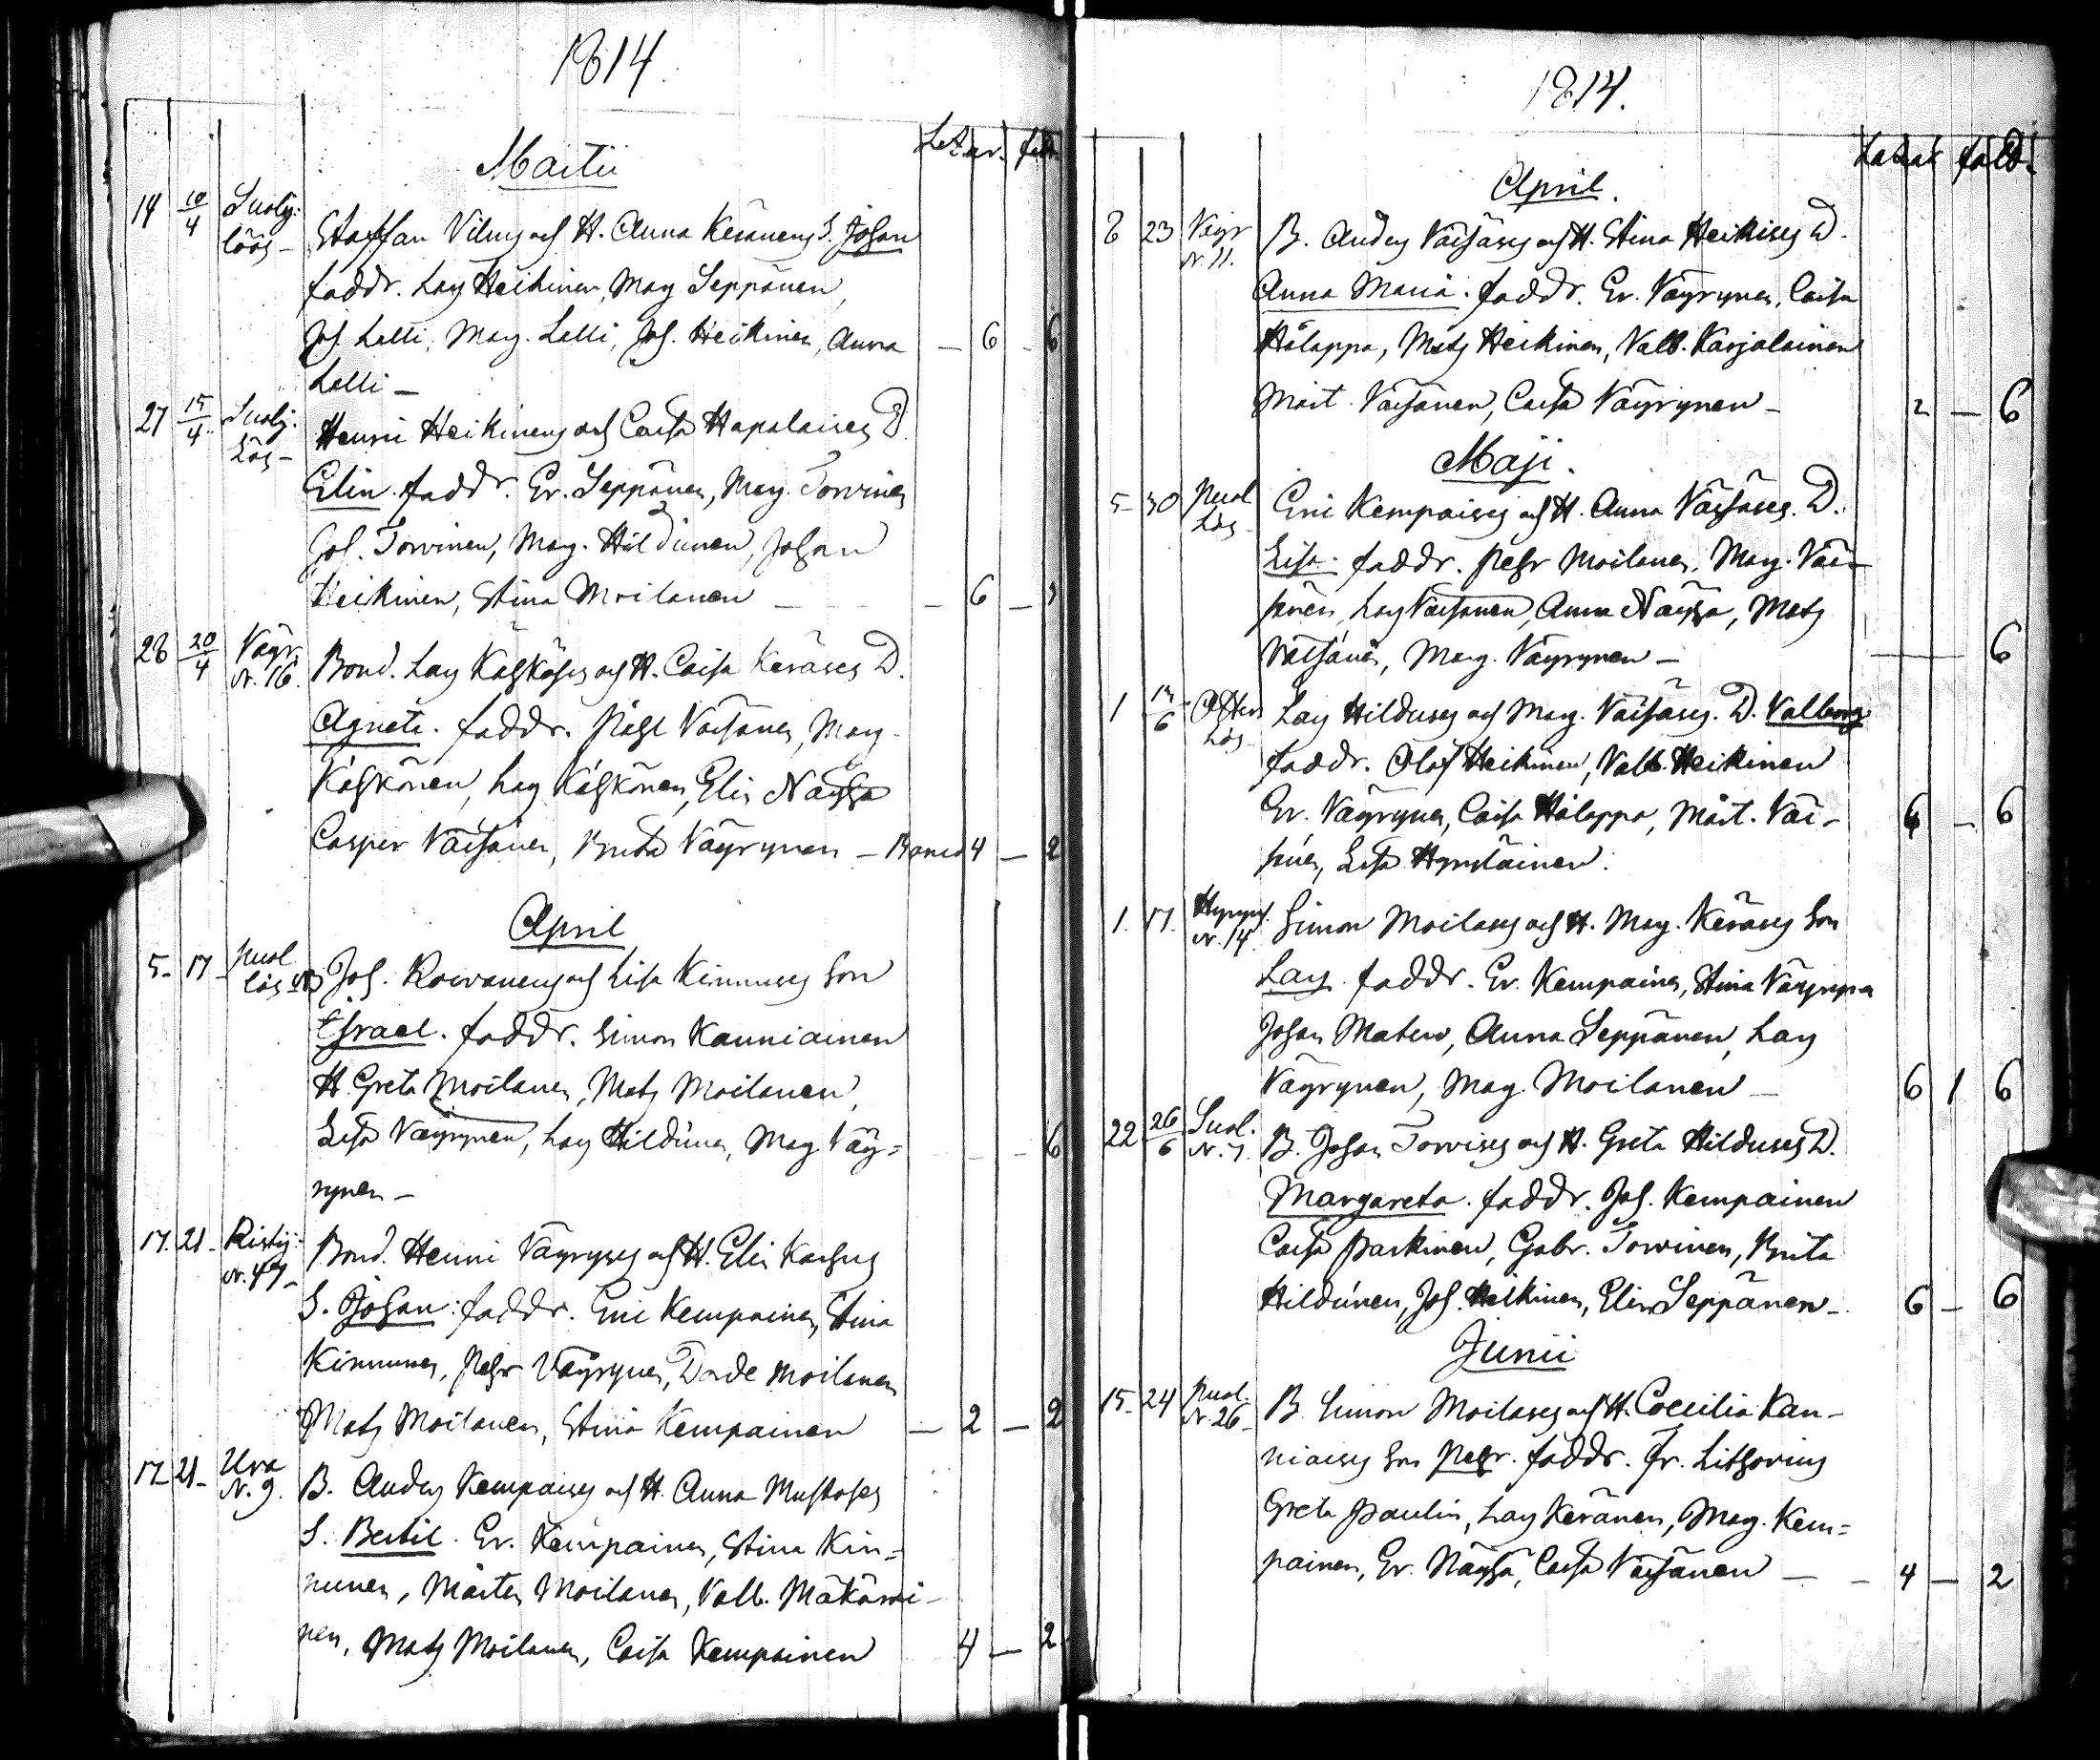 1814.
Martii
14 10/4 Suolj: Staffan Vilmg och H. Anna Keränens S. Johan
löös-
faddr. Lars Heikinen, Marg Seppänen,
Joh Lalli, Marg. Lalli, Joh. Heikinen, Anna — 6 - 6
Lalli —
27 15/4 Suolj: Henric Heikinens och Caisa Hapalaines D.
Lös-
Elin. faddr. Er. Seppänen, Marg. Torvinen
Joh. Torvinen, Marg. Hildunen, Johan
Heikinen, Stina Moilanen — — 6 —
28 20/4 Vägr. Bond. Lars Käskäses och H. Caisa Keräses D.
N. 16.
Agneta. faddr. Påhl Väisänen, Marg
Käskönen, Lars Käskönen, Elin Näyhä
Casper Väisänen, Brita Väyrynen — 4 — 2
April
5- 17- Puol. Joh. Rowanens och Lisa Kinnuses Son
lös
Israel. faddr. Simon Kanniainen
H. Greta Moilanen, Mats Moilanen,
Lisa Väyrynen, Lars Hildunen, Marg Väy= 6
rynen —
17. 21- Ristij: Bond. Henric Väyryses och H. Elin Karhus
N. 47-
S. Johan: faddr. Eric Kempainen, Stina
Kinnunen, Pehr Väyrynen, Dorde Moilanen
Mats Moilanen, Stina Kempainen — 2 — 2
17- 21- Ura B. Anders Kempaises och H. Anna Mustoses
N. 9.
S. Bertil. Er. Kempainen, Stina Kin=
nunen, Mårten Moilanen, Valb. Mäkäräi-
nen, Mats Moilanen, Caisa Kempainen 4 — 2
1814.
April.
8 23 Vägr B. Anders Väisäses och H. Stina Heikises D.
N. 11.
Anna Maria. faddr. Er. Väyrynen, Caisa
Hålappa, Mats Heikinen, Valb. Karjalainen
Mårt. Väisänen, Caisa Väyrynen — 2 — 6
Maji.
5- 30 Puol Eric Kempaises och H. Anna Väisäses. D.
Lös
Lisa. faddr. Pehr Moilanen, Marg. Väi-
sänen, Lars Väisänen, Anna Näyhä, Mats
Väisänen, Marg. Väyrynen — 6
1 /6 Lars Hilduses och Marg. Väisäses. D. Valborg
Lös
faddr. Olof Heikinen, Valb. Heikinen
Er. Väyrynen, Caisa Hålappa, Mårt. Väi- 6 — 6
sänen, Lisa Hyryläinen.
1. 17. Hyryns. Simon Moilases och H. Marg. Keräses Son
N. 14
Lars. faddr. Er. Kempainen, Stina Väyrynen
Johan Matero, Anna Seppänen, Lars
Väyrynen, Marg Moilanen — 6 1 6
22 26/6 Suol. B. Johan Torvises och H. Greta Hilduses D.
N. 7.
Margareta. faddr. Joh. Kempainen
Caisa Parkinen, Gabr. Torvinen, Brita
Hildunen, Joh. Heikinen, Elin Seppänen — 6 — 6
Junii
15- 24 Puol. B. Simon Moilases och H. Coecilia Kan-
N. 26-
niaises Son Pehr. faddr. Fr. Lithovius
Greta Paulin, Lars Keränen, Marg. Kem=
painen, Er. Näyhä, Caisa Väisänen — 4 — 2